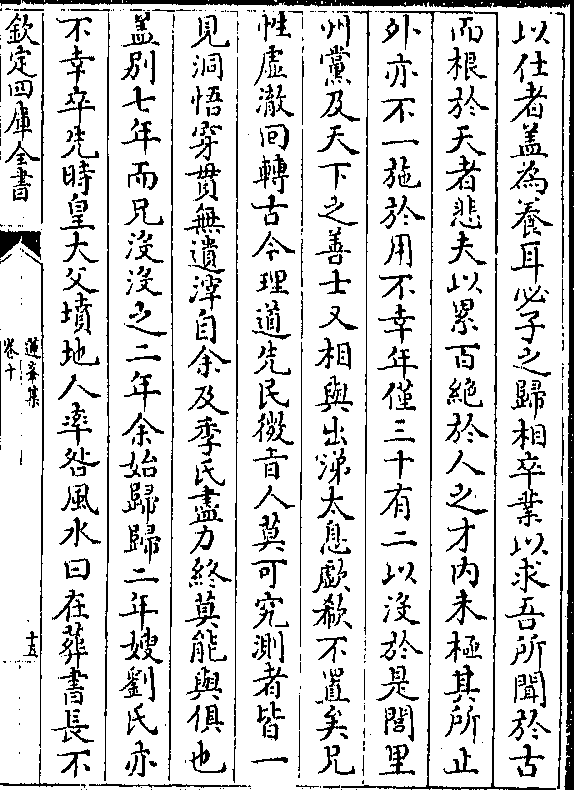 以仕者盖為養耳必子之歸相卒業以求吾所聞於古
而根於天者悲夫以累百絶於人之才内未極其所止
外亦不一施於用不幸年僅三十有二以沒於是閭里
州黨及天下之善士又相與出涕太息歔欷不置矣兄
性虚澈回轉古今理道先民微言人莫可究測者皆一
見洞悟穿貫無遺滓自余及季氏盡力終莫能與俱也
盖别七年而兄沒沒之二年余始歸歸二年嫂劉氏亦
不幸卒先時皇大父墳地人率咎風水曰在葬書長不
欽定四庫全書
卷十
十五